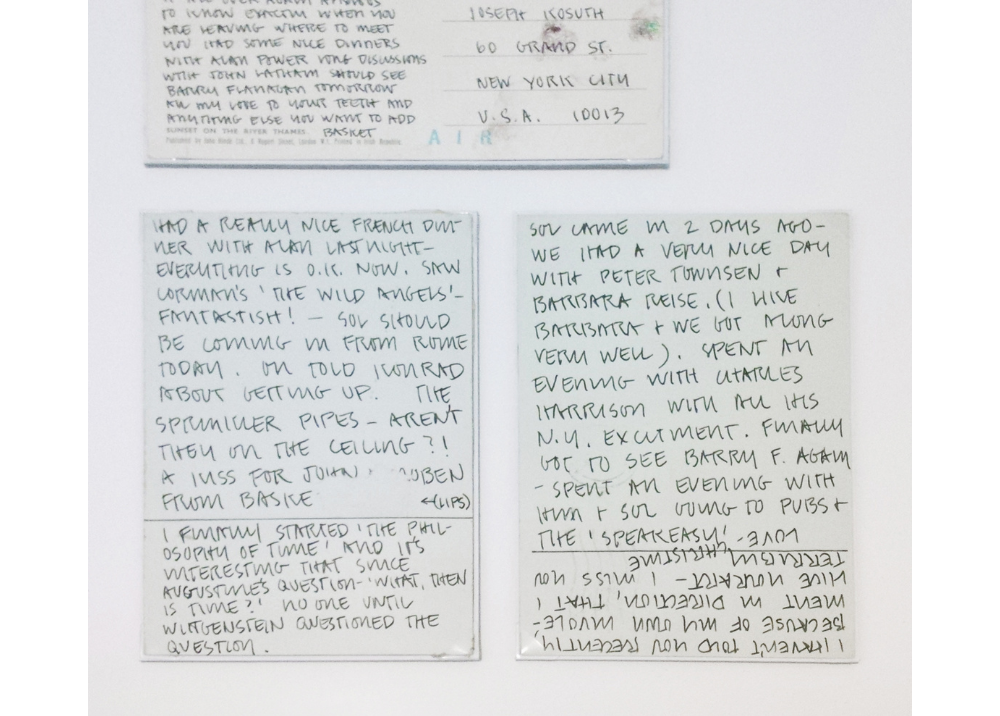 TO KNOW EXACTLY WHEN YOU
ARE LEAVING WHERE TO MEET
YOU HAD SOME NICE DINNERS
WITH ALAN POWER LONG DISCUSSIONS
WITH JOHN LATHAM SHOULD SEE
BARRY FLANAGAN TOMORROW
ALL MY LOVE TO YOUR TEETH AND
ANYTHING ELSE YOU WANT TO ADD
BASKET
SUNSET ON THE RIVER THAMES.
JOSEPH KOSUTH
60 GRAND ST.
NEW YORK CITY
U.S.A. 10013
AIR
HAD A REALLY NICE FRENCH DIN-
NER WITH ALAN LAST NIGHT-
EVERYTHING IS O.K. NOW. SAW
CORMAN'S 'THE WILD ANGELS'-
FANTASTISH! - SOL SHOULD
BE COMING IN FROM ROME
TODAY. ON TOLD KONRAD
ABOUT GETTING UP. THE
SPRINKLER PIPES - AREN'T
THEY ON THE CEILING?!
A KISS FOR JOHN
FROM BASKE ←(LIPS)
I FINALLY STARTED 'THE PHIL-
OSOPHY OF TIME' AND IT'S
INTERESTING THAT SINCE
AUGUSTINE'S QUESTION-'WHAT, THEN
IS TIME?' NO ONE UNTIL
WITTGENSTEIN QUESTIONED THE
QUESTION.
SOL CAME IN 2 DAYS AGO-
WE HAD A VERY NICE DAY
WITH PETER TOWNSEN +
BARBARA REISE. (I LIKE
BARBARA + WE GOT ALONG
VERY WELL). SPENT AN
EVENING WITH CHARLES
HARRISON WITH ALL HIS
N.Y. EXCITMENT. FINALLY
GOT TO SEE BARRY F. AGAIN
- SPENT AN EVENING WITH
HIM + SOL GOING TO PUBS +
THE 'SPEAKEASY'- LOVE
CHRISTINE
I HAVEN'T TOLD YOU RECENTLY,
BECAUSE OF MY OWN INVOLE-
MENT IN DIRECTION, THAT I
LIKE YOUR ART - I MISS YOU
TERRIBLY